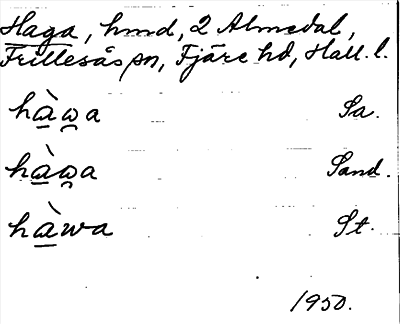 Haga, hmd, 2 Almedal,
Frillesås sn, Fjäre hd, Hall. l.
hàw̯a Sa.
hàw̯a Sand.
hàwa St.
1950.